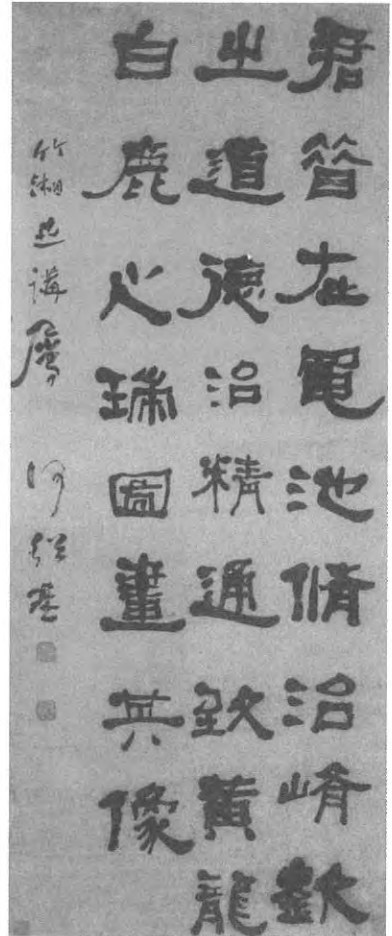 君昔在黽池脩治崤嶔
之道德治精通致黃龍
白鹿之瑞圖畫其像
竹世講屬 何紹基